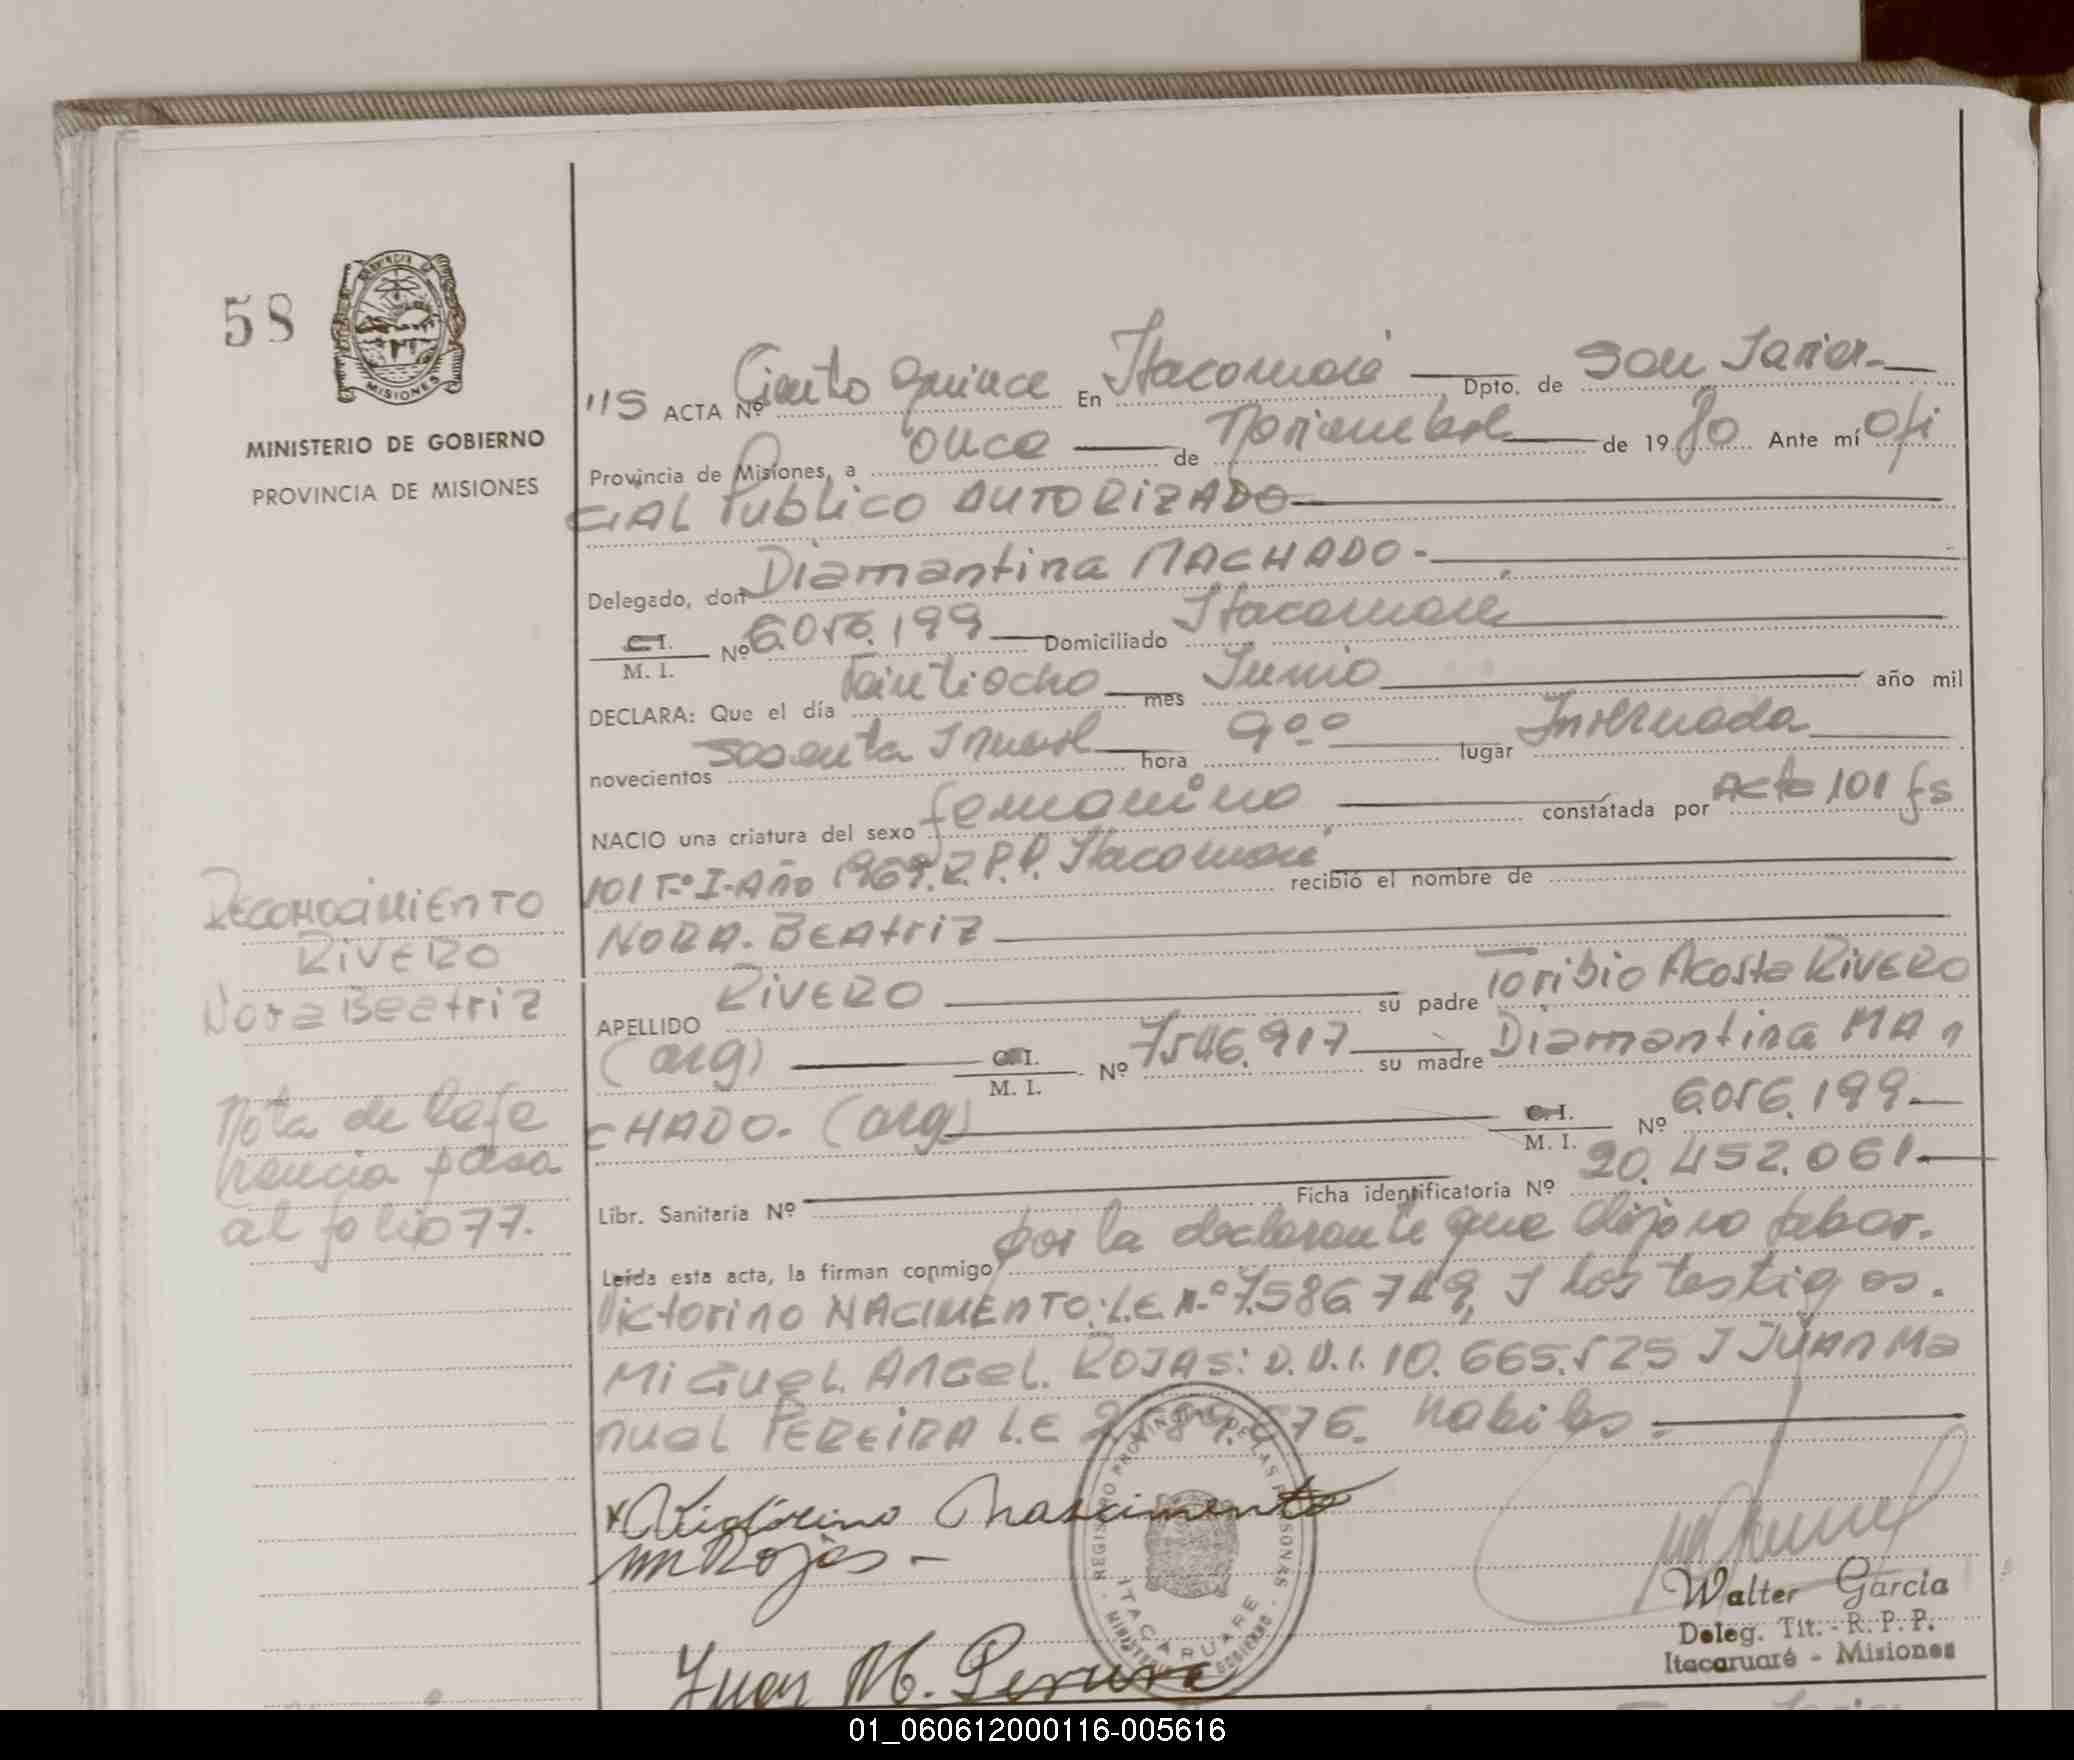 58
PROVINCIA D
MISIONES
MINISTERIO DE GOBIERNO
PROVINCIA DE MISIONES
115 ACTA Nº Ciento quince En Itacaruaré Dpto. de San Javier.
Provincia de Misiones, a once de Noviembre de 19 80 Ante mí Ofi
CIAL Publico AUTORIZADO
Delegado, don Diamantina MACHADO.
C.I. M. I. Nº 6.056.199 Domiciliado Itacaruaré
DECLARA: Que el día Veintiocho mes Junio año mil
novecientos sesenta I nueve hora 9 00 lugar Internada
NACIO una criatura del sexo femenino constatada por Acta 101 fs
101 T.º I-Año 1969. R.P.P. Itacaruaré recibió el nombre de
NORA. BEAtriZ
APELLIDO RIVERO su padre Toribio Acosta RIVERO
(arg) C.I. M. I. Nº 7546.917 su madre Diamantina MA
CHADO. (arg) C.I. M. I. Nº 6.056.199
Libr. Sanitaria Nº Ficha identificatoria Nº 20.452.061
Leída esta acta, la firman conmigo por la declarante que dijo no saber.
Victorino NACIMENTO: L.E N.º 7.586.749, I los testigos.
MiGueL. ANGeL. ROJAS: D.N.I. 10.665.525 I JUAN Ma
nueL PEREIRA L.E habiles.
Reconocimiento
RIVERO
Nora Beatriz
Nota de Refe
rencia pasa
al folio 77.
Victorino Nascimento
Rojas -
Juan M. Pereira
REGISTRO PROVINCIAL DE LAS PERSONAS
ITACARUARE
MINISTERIO GOBIERNO
Walter Garcia
Deleg. Tit. - R. P. P.
Itacaruaré - Misiones
01_060612000116-005616